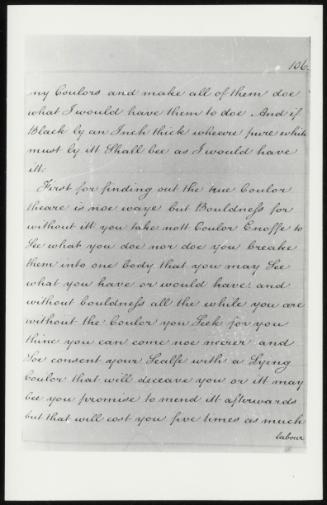 106
my Coulors and make all of them doe
what I would have them to doe And if
Black ly an Inch thick wheare pure white
must ly itt Shall bee as I would have
itt.
First for finding out the true Coulor
theare is noe waye but Bouldness for
without itt you take nott Coulor Enoffe to
See what you doe nor doe you breake
them into one body that you may See
what you have or would have and
without Couldness all the while you are
without the Coulor you Seek for you
thinc you can come noe nearer and
Soe consent your Sealfe with a Lyeng
Coulor that will deceave you or itt may
bee you promise to mend itt afterwards
but that will cost you five times as much
labour